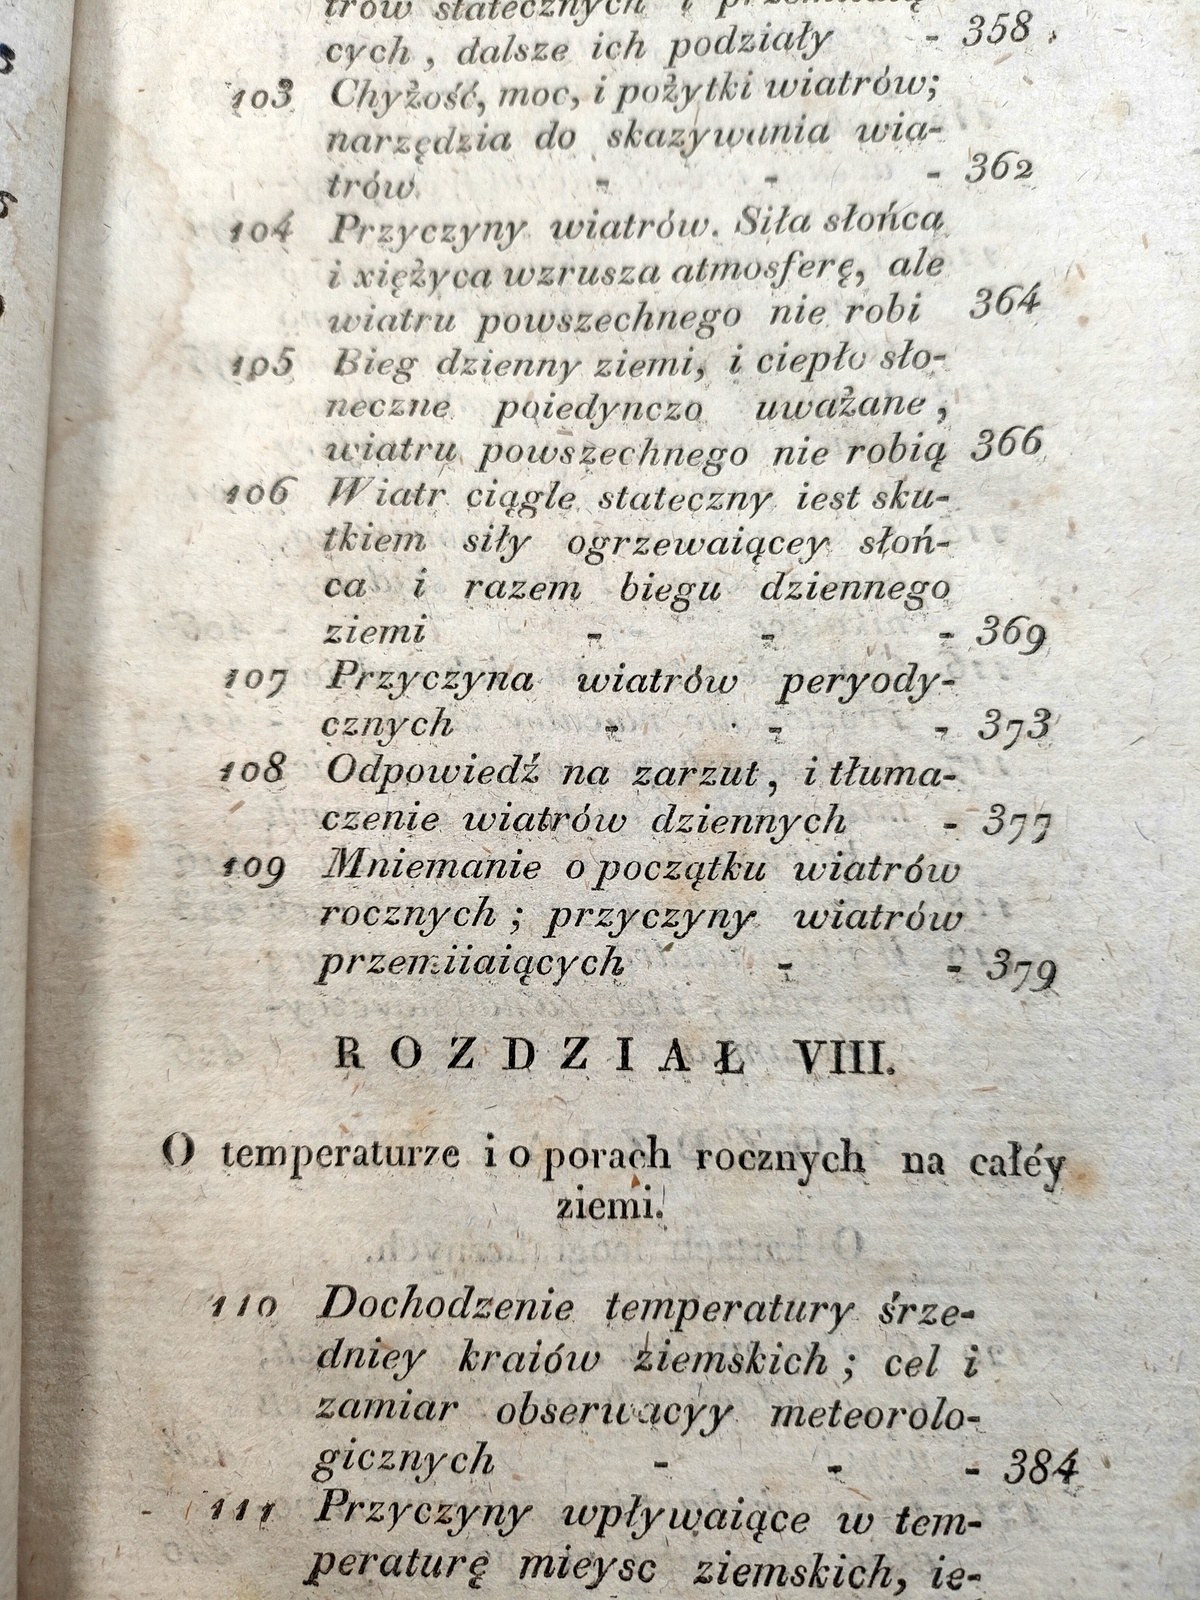 trów statecznych i
cych, dalsze ich podziały - 358
103 Chyżość, moc, i pożytki wiatrów;
narzędzia do skazywania wia-
trów - - - 362
104 Przyczyny wiatrów. Siła słońca
i xiężyca wzrusza atmosferę, ale
wiatru powszechnego nie robi 364
105 Bieg dzienny ziemi, i ciepło sło-
neczne poiedynczo uważane,
wiatru powszechnego nie robią 366
106 Wiatr ciągle stateczny iest sku-
tkiem siły ogrzewaiącey słoń-
ca i razem biegu dziennego
ziemi - - - 369
107 Przyczyna wiatrów peryody-
cznych - - - 373
108 Odpowiedź na zarzut, i tłuma-
czenie wiatrów dziennych - 377
109 Mniemanie o początku wiatrów
rocznych; przyczyny wiatrów
przemiiaiących - - 379
ROZDZIAŁ VIII.
O temperaturze i o porach rocznych na całéy
ziemi.
110 Dochodzenie temperatury śrze-
dniey kraiów ziemskich; cel i
zamiar obserwacyy meteorolo-
gicznych - - - 384
111 Przyczyny wpływaiące w tem-
peraturę mieysc ziemskich, ie-